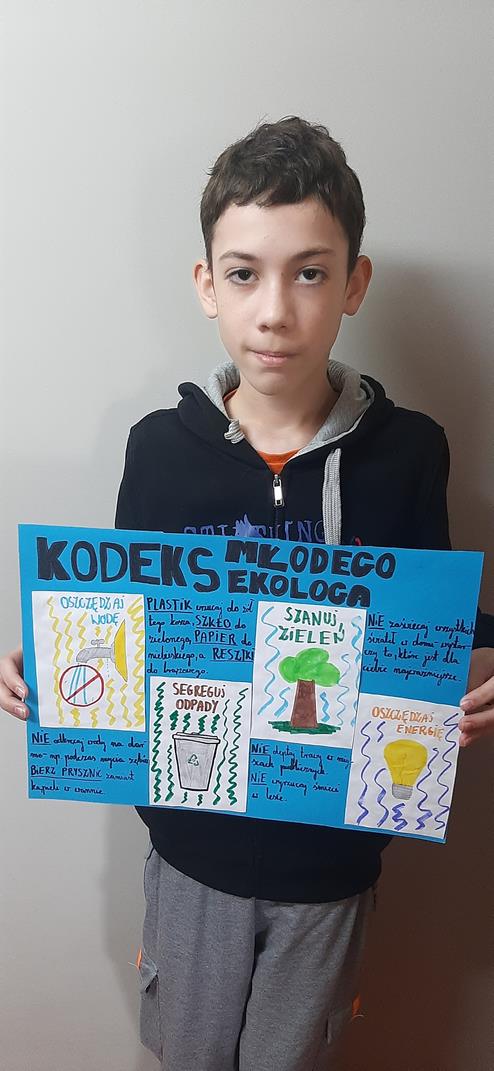 KODEKS MŁODEGO
EKOLOGA
OSZCZĘDZAJ
WODĘ
NIE odkręcaj wody na dar
mo- np. podczas mycia zębów
BIERZ PRYSZNIC zamiast
kąpieli w wannie.
PLASTIK wrzucaj do żół
tego kosza, SZKŁO do
zielonego, PAPIER do
niebieskiego, a RESZTKI
do brązowego.
SEGREGUJ
ODPADY
SZANUJ
ZIELEŃ
NIE depty trawy w miej
scach publicznych.
NIE wyrzucaj śmieci
w lesie.
NIE zaświecaj wszystkich
świateł w domu, wystar
czy to, które jest dla
ciebie najważniejsze.
OSZCZĘDZAJ
ENERGIĘ